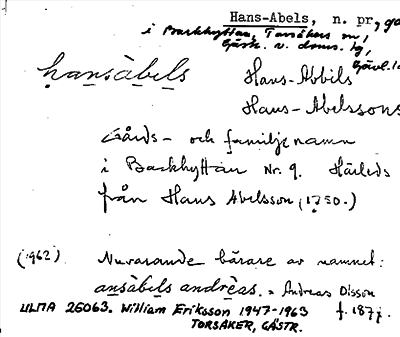 Hans-Abels, n. pr, ga
i Backhyttan, Torsåkers sn,
Gästr. v. doms. hg,
Gävl. l.
hansàbels Hans-Abbils
Hans-Abelssons
Gårds- och familjenamn
i Backhyttan Nr. 9. Härleds
från Hans Abelsson (1750.)
(1962) Nuvarande bärare av namnet:
ansàbels andrèas. = Andreas Olsson
ULMA 26063. William Eriksson 1947-1963 f. 187j.
TORSÅKER, GÄSTR.